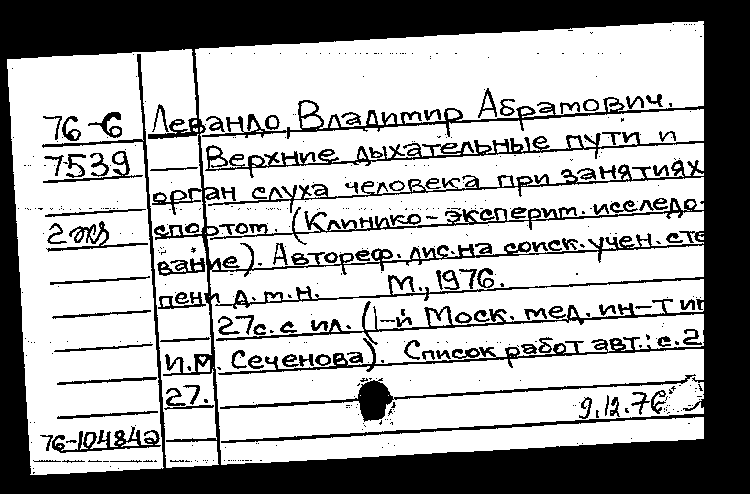 76-6 Левандо, Владимир Абрамович.
7539 Верхние дыхательные пути и
орган слуха человека при занятиях
2 экз спортом. (Клинико-эксперим. исследо-
вание). Автореф. дис. на соиск. учен. сте
пени д.м.н. М., 1976.
27с. с ил. (1-й Моск. мед. ин-т им
И.М. Сеченова). Список работ авт.: с. 2
27.
9.12.76
76-104842